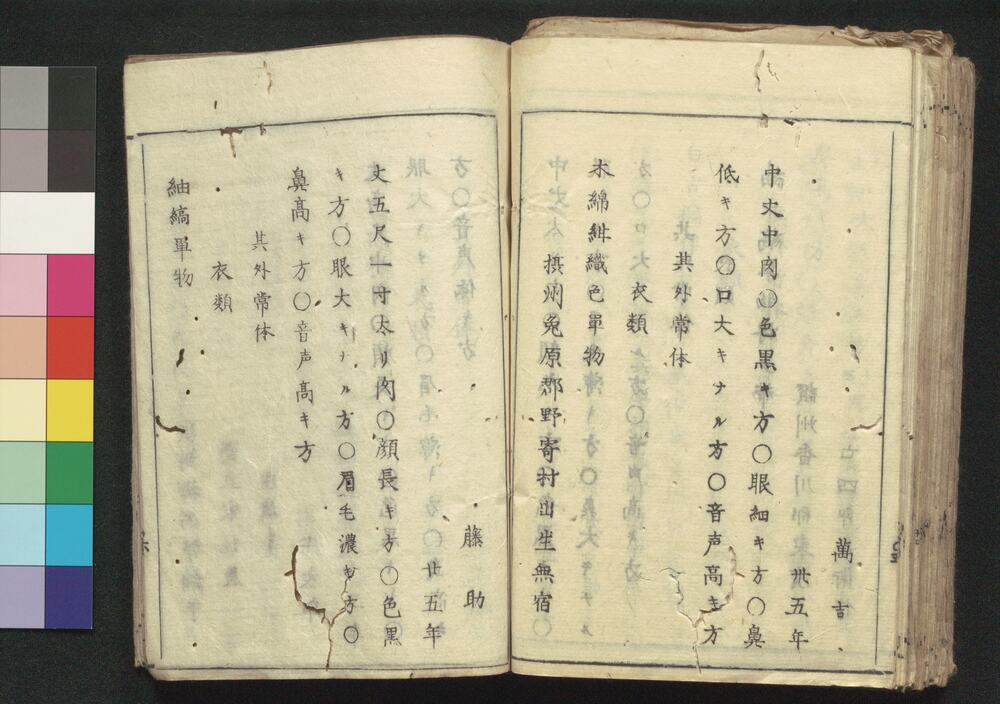 萬吉
丗五年
中丈中肉〇色黒キ方〇眼細キ方〇鼻
低キ方〇口大キナル方〇音声高キ方
其外常体
衣類
木綿紺織色單物
摂州兔原郡野寄村出生無宿
藤助
廿五年
丈五尺一寸太リ肉〇顔長キ方〇色黒
キ方〇眼大キナル方〇眉毛濃キ方〇
鼻高キ方〇音声高キ方
其外常体
衣類
紬縞單物